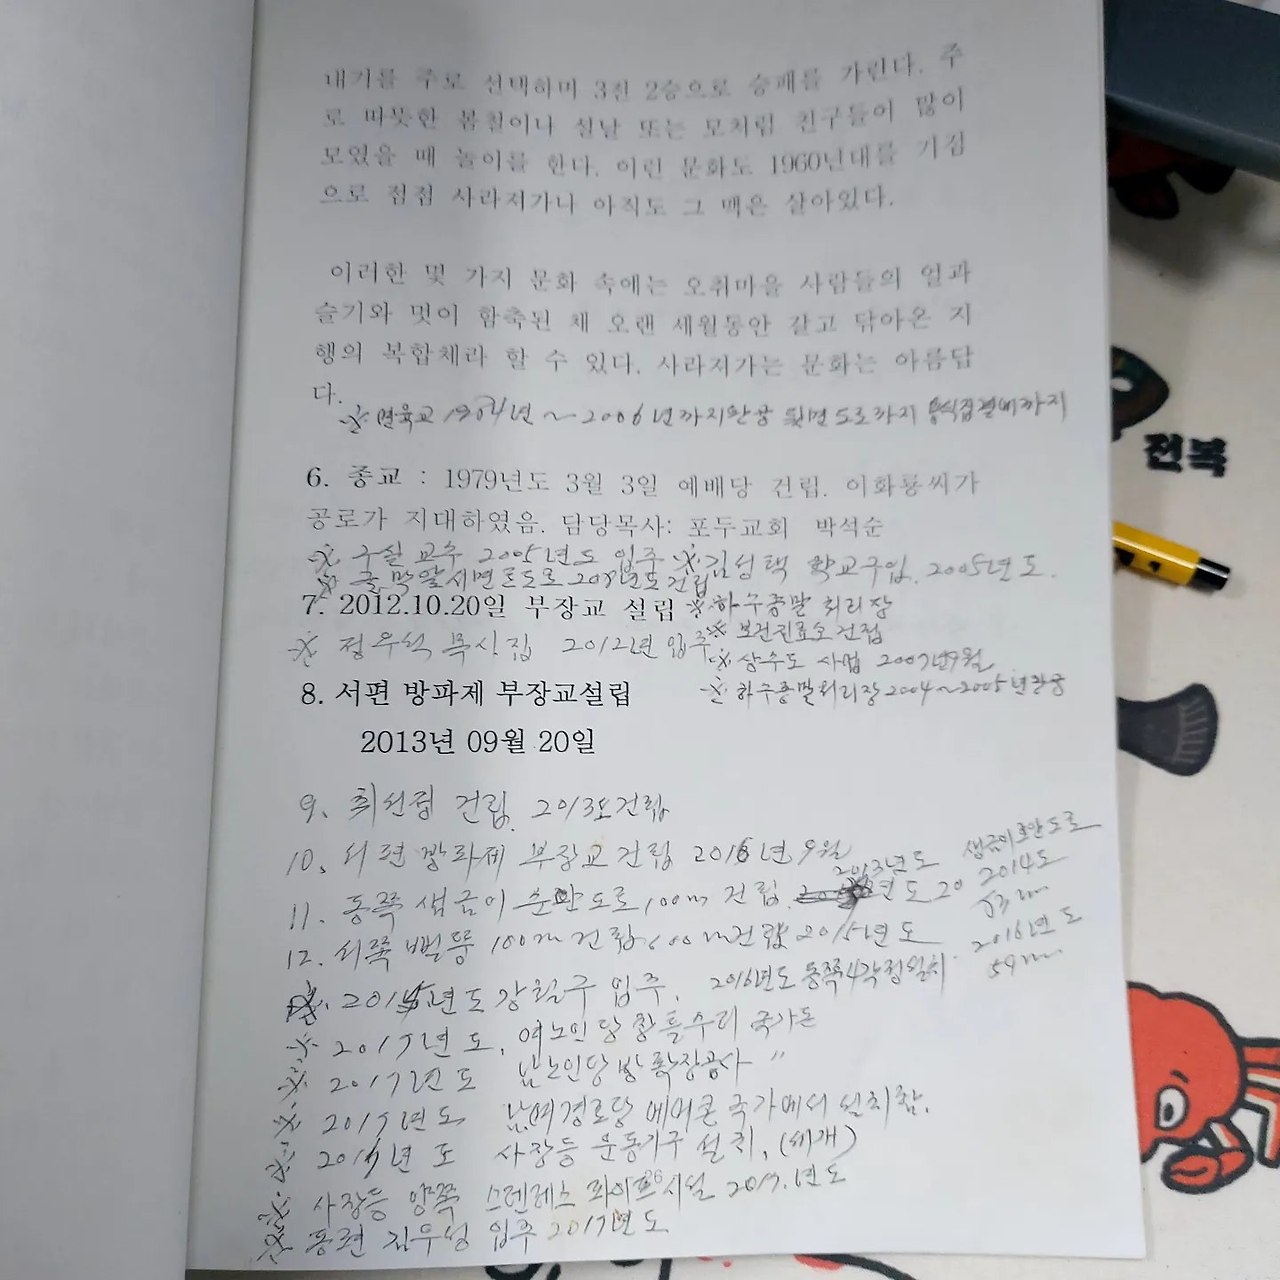 내기를 주로 선택하며 3전 2승으로 승패를 가린다. 주
로 따뜻한 봄철이나 설날 또는 모처럼 친구들이 많이
모였을 때 놀이를 한다. 이런 문화도 1960년대를 기점
으로 점점 사라져가나 아직도 그 맥은 살아있다.
이러한 몇 가지 문화 속에는 오취마을 사람들의 얼과
슬기와 멋이 함축된 채 오랜 세월동안 갈고 닦아온 지
행의 복합체라 할 수 있다. 사라져가는 문화는 아름답
다.
※ 연육교 년 ~ 2006년까지완공 뒷면도로까지
6. 종교 : 1979년도 3월 3일 예배당 건립. 이화룡씨가
공로가 지대하였음. 담당목사: 포두교회 박석순
※ 교수 2005년도 입주 ※ 김성택 학교구입. 2005년도.
※ 서편 도로 건립
7. 2012.10.20일 부장교 설립 ※ 하수종말 처리장
※ 보건진료소 건립
※ 정우석 목사집 2012년 입주
※ 상수도 사업 2007년9월
8. 서편 방파제 부장교설립
※ 하수종말처리장 2004~2005년완공
2013년 09월 20일
9. 건립. 2013도건립
10. 서편 방파제 부장교 건립 2016년 9월
2013년도
11. 동쪽 샘금이 도로 100m 건립 년도 20
샘금이 도로
2014도
12. 서쪽 뻘뚱 100m건립 건립 2015년도
2016년도
59m
※. 년도 강 구 입주. 2016년도 동쪽 4각정설치.
※ 2017년도. 여노인당 창틀수리 국가돈
※ 2017년도 남노인당 방 확장공사 〃
※ 2017년도 남여경로당 에어콘 국가에서 설치함.
※ 년도 사장등 운동기구 설치. (세개)
※ 사장등 양쪽 스텐레스 파이프 시설 2017.년도
26
※ 동편 김우성 입주 2017년도
전복